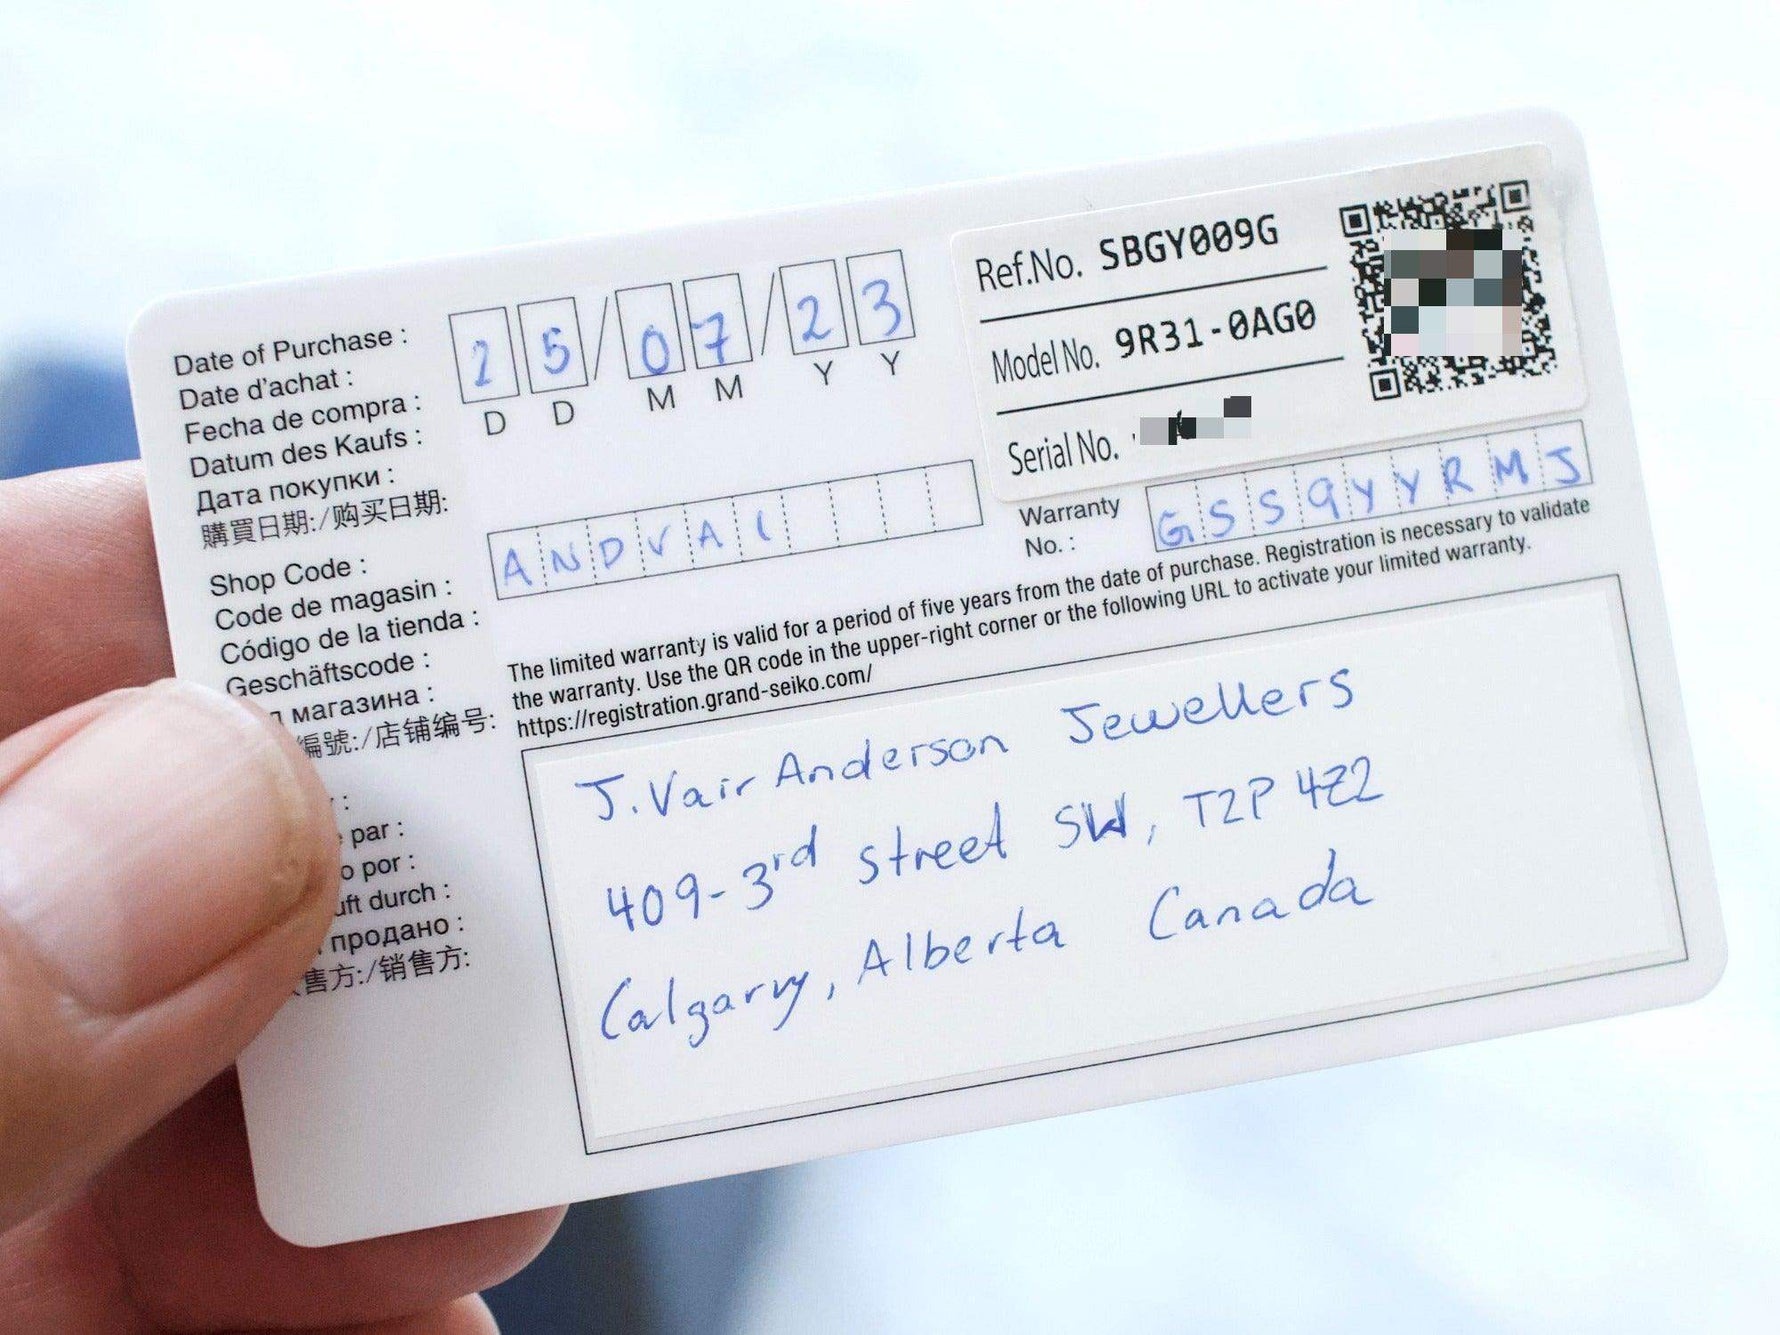 Date of Purchase :
Date d'achat :
Fecha de compra :
Datum des Kaufs :
Дата покупки :
購買日期:/购买日期:
25/07/23
D D M M Y Y
Ref.No. SBGY009G
Model No. 9R31-0AG0
Serial No.
Shop Code :
Code de magasin :
Código de la tienda :
Geschäftscode :
магазина :
編號:/店铺编号:
ANDVAI
Warranty
No. :
GSS9YYRMJ
The limited warranty is valid for a period of five years from the date of purchase. Registration is necessary to validate
the warranty. Use the QR code in the upper-right corner or the following URL to activate your limited warranty.
https://registration.grand-seiko.com/
par :
por :
durch :
продано :
售方:/销售方:
J. Vair Anderson Jewellers
409-3rd street SW, T2P 4Z2
Calgary, Alberta Canada